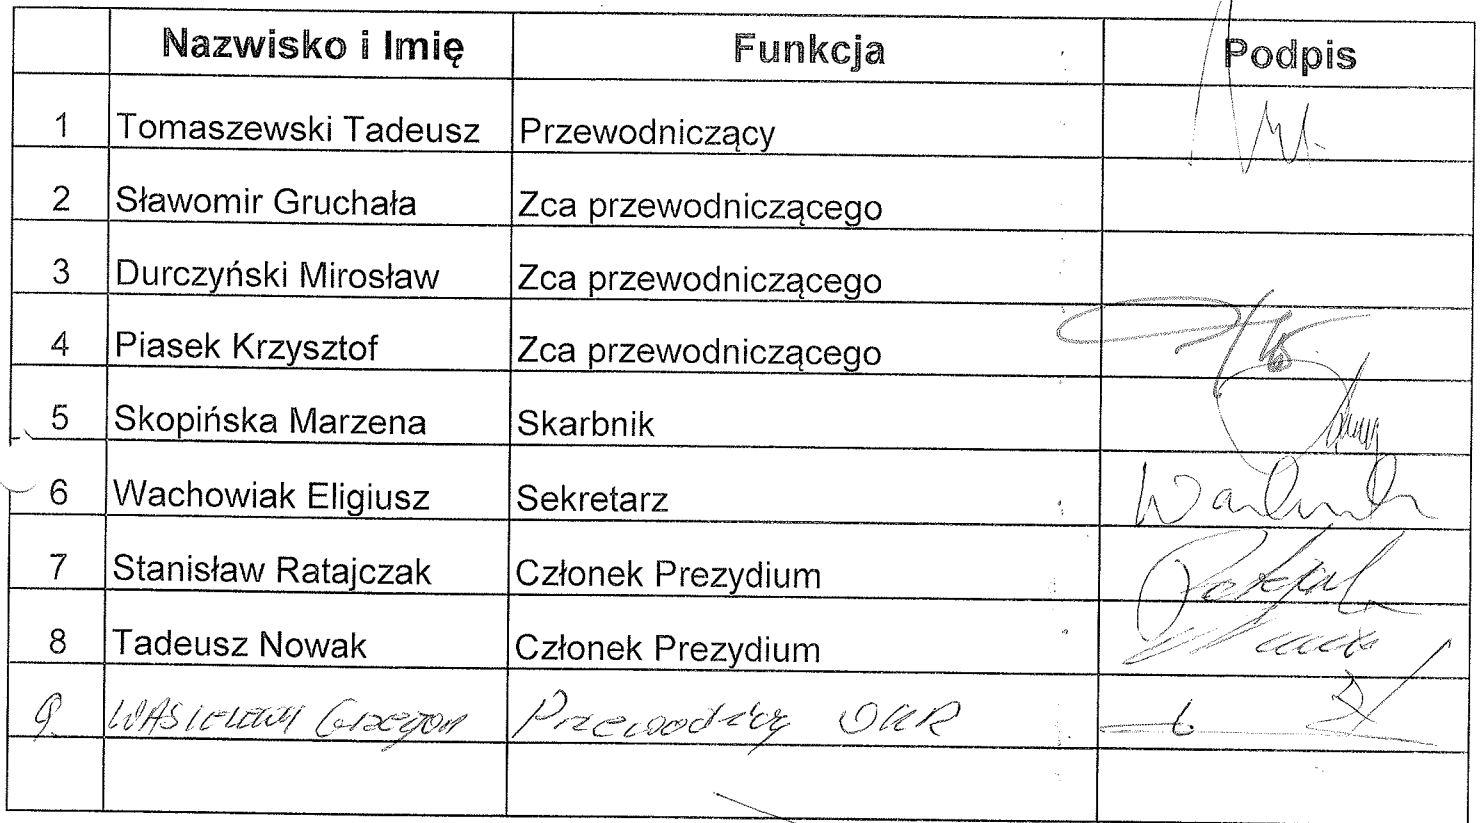 Nazwisko i Imię Funkcja Podpis
1 Tomaszewski Tadeusz Przewodniczący
2 Sławomir Gruchała Zca przewodniczącego
3 Durczyński Mirosław Zca przewodniczącego
4 Piasek Krzysztof Zca przewodniczącego
5 Skopińska Marzena Skarbnik
6 Wachowiak Eligiusz Sekretarz
7 Stanisław Ratajczak Członek Prezydium
8 Tadeusz Nowak Członek Prezydium
9. Grzegorz